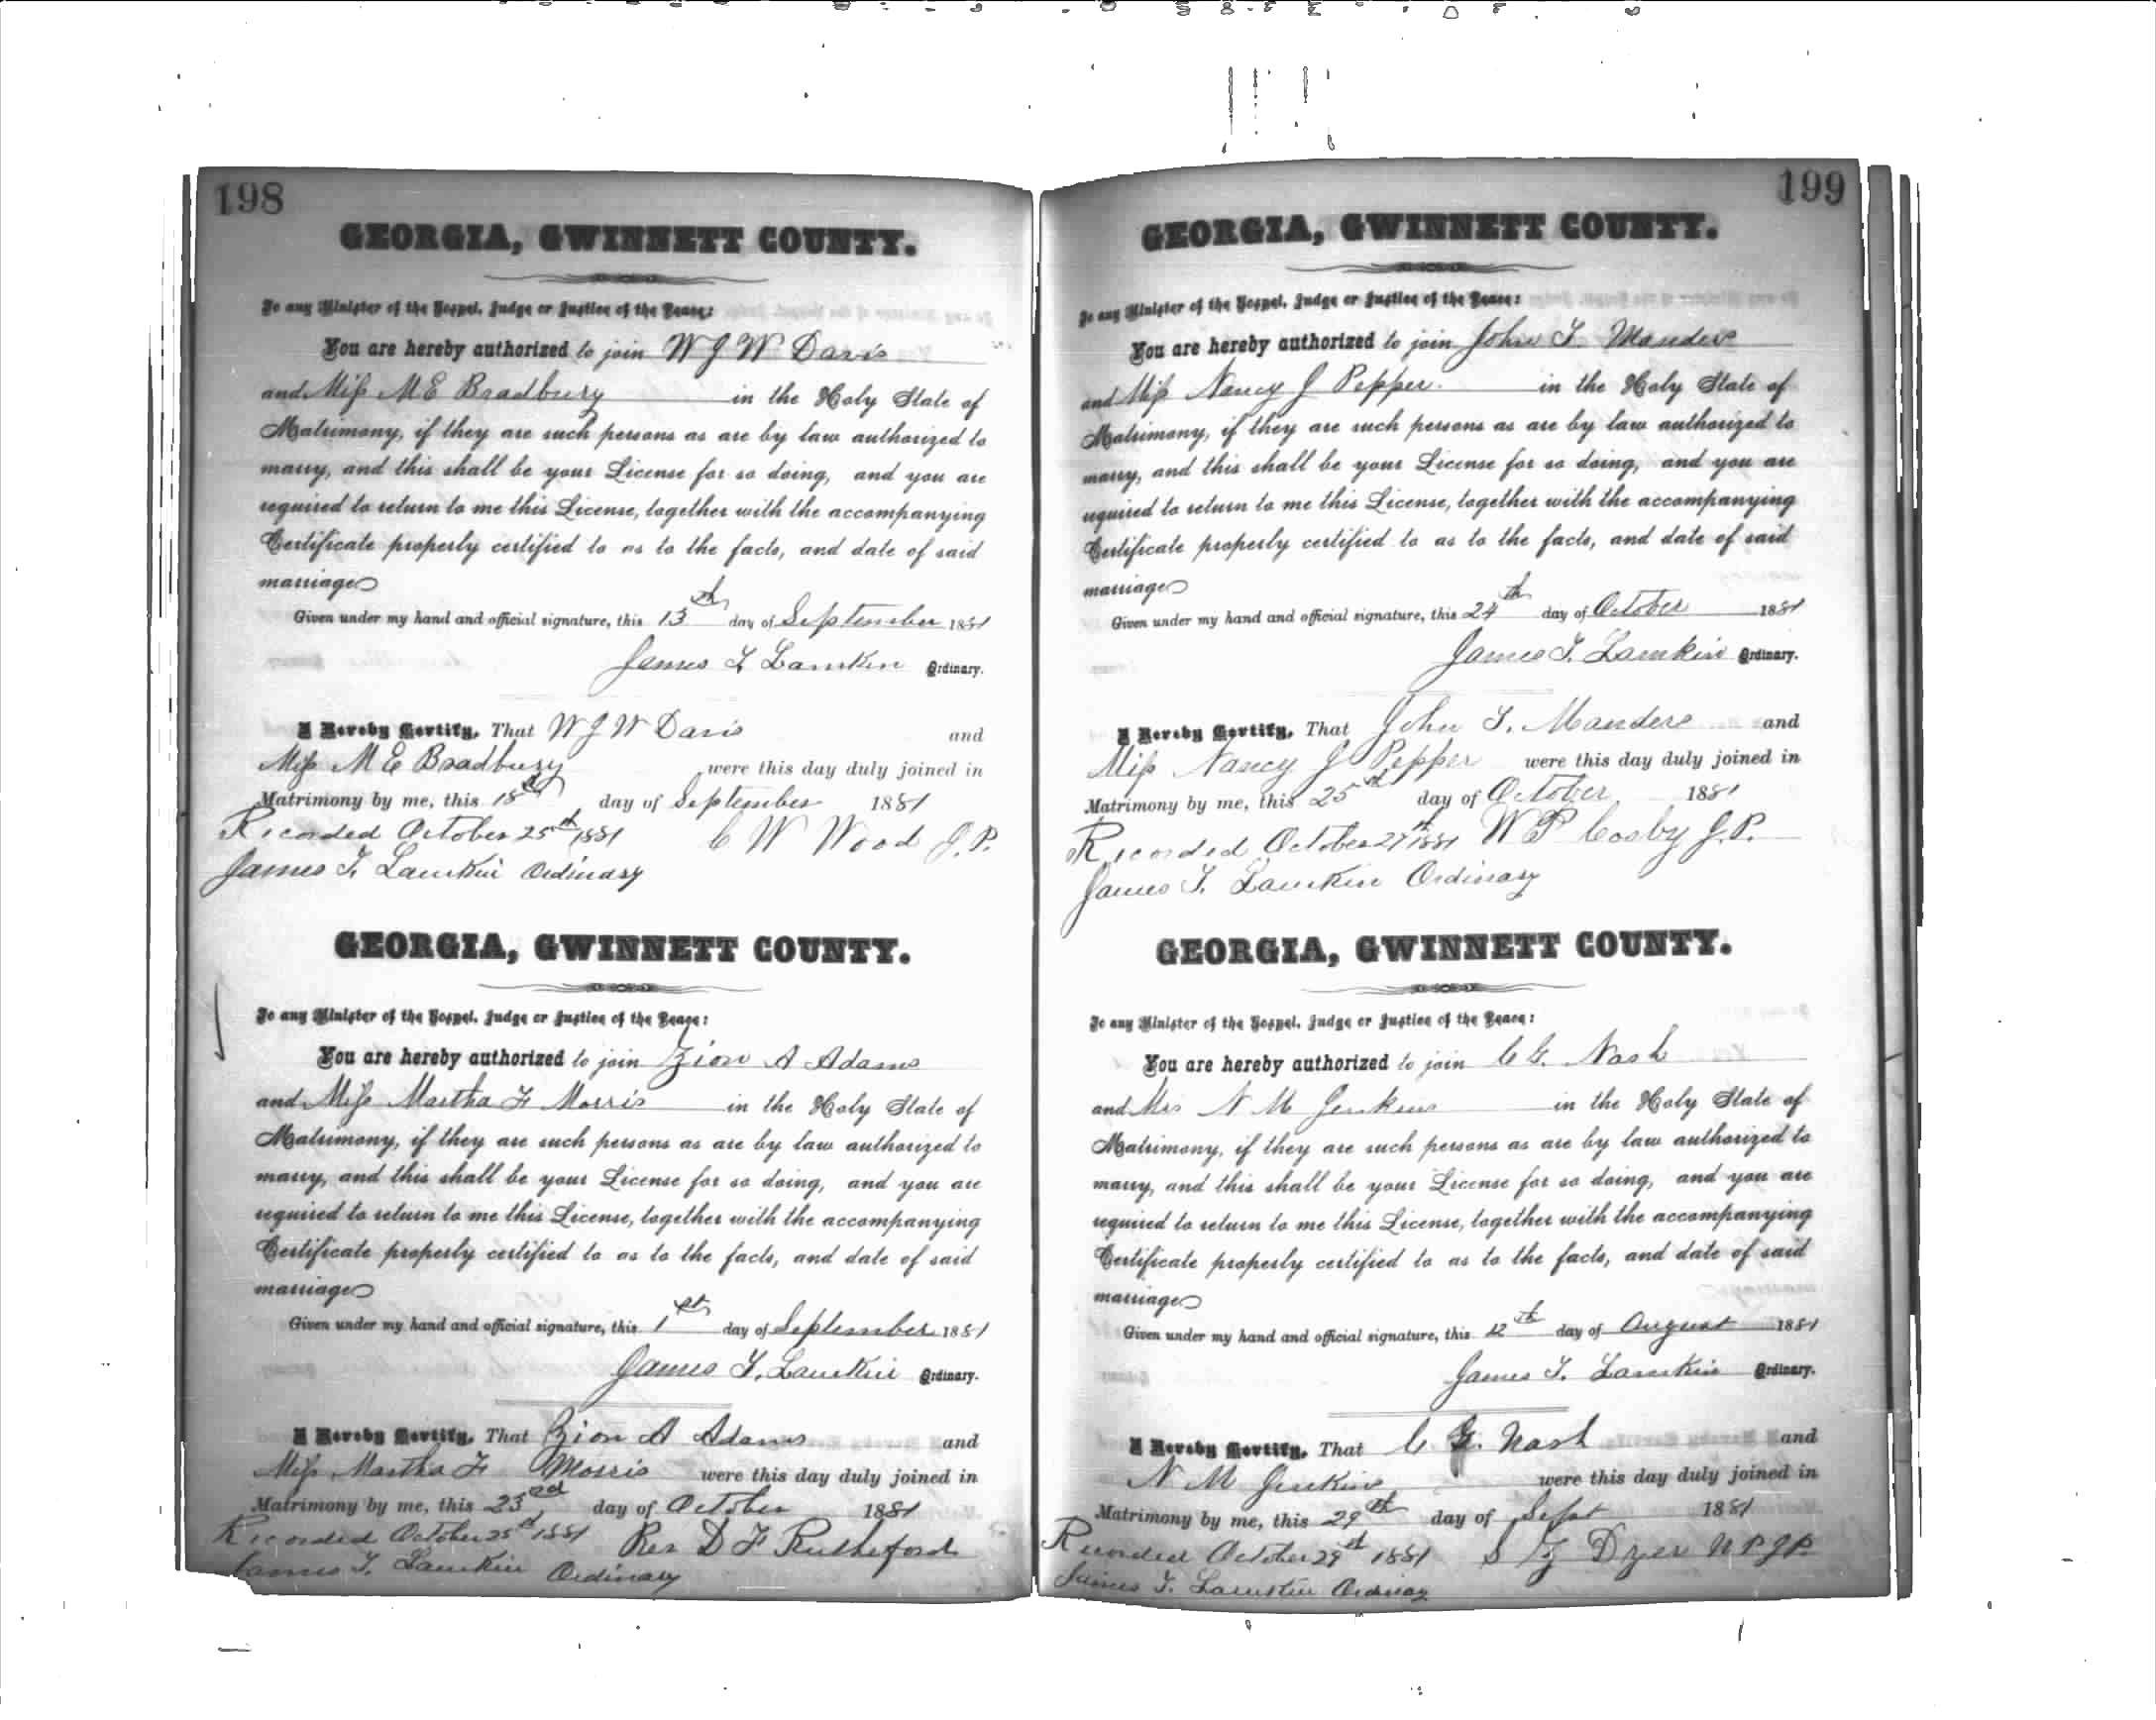 198
GEORGIA, GWINNETT COUNTY.
To any Minister of the Gospel, Judge or Justice of the Peace:
You are hereby authorized to join W J W Davis
and Miss M E Bradbury in the Holy State of
Matrimony, if they are such persons as are by law authorized to
marry, and this shall be your License for so doing, and you are
required to return to me this License, together with the accompanying
Certificate properly certified to as to the facts, and date of said
marriage
Given under my hand and official signature, this 13th day of September 1881
James T. Lamkin Ordinary.
I Hereby Certify, That W J W Davis and
Miss M E Bradbury were this day duly joined in
Matrimony by me, this 18th day of September 1881
Recorded October 25th 1881 C W Wood J.P.
James T. Lamkin Ordinary
GEORGIA, GWINNETT COUNTY.
To any Minister of the Gospel, Judge or Justice of the Peace:
You are hereby authorized to join Zion A Adams
and Miss Martha F Morris in the Holy State of
Matrimony, if they are such persons as are by law authorized to
marry, and this shall be your License for so doing, and you are
required to return to me this License, together with the accompanying
Certificate properly certified to as to the facts, and date of said
marriage
Given under my hand and official signature, this 1st day of September 1881
James T. Lamkin Ordinary.
I Hereby Certify, That Zion A Adams and
Miss Martha F Morris were this day duly joined in
Matrimony by me, this 23rd day of October 1881
Recorded October 25th 1881 Rev D F Rutheford
James T. Lamkin Ordinary
199
GEORGIA, GWINNETT COUNTY.
To any Minister of the Gospel, Judge or Justice of the Peace:
You are hereby authorized to join John T. Manders
and Miss Nancy J Pepper. in the Holy State of
Matrimony, if they are such persons as are by law authorized to
marry, and this shall be your License for so doing, and you are
required to return to me this License, together with the accompanying
Certificate properly certified to as to the facts, and date of said
marriage
Given under my hand and official signature, this 24th day of October 1881
James T. Lamkin Ordinary.
I Hereby Certify, That John T. Manders and
Miss Nancy J Pepper were this day duly joined in
Matrimony by me, this 25th day of October 1881
Recorded October 27th 1881 W P Cosby J.P.
James T. Lamkin Ordinary
GEORGIA, GWINNETT COUNTY.
To any Minister of the Gospel, Judge or Justice of the Peace:
You are hereby authorized to join C G. Nash
and Mrs N M Jenkins in the Holy State of
Matrimony, if they are such persons as are by law authorized to
marry, and this shall be your License for so doing, and you are
required to return to me this License, together with the accompanying
Certificate properly certified to as to the facts, and date of said
marriage
Given under my hand and official signature, this 12th day of August 1881
James T. Lamkin Ordinary.
I Hereby Certify, That C G. Nash and
N M Jenkins were this day duly joined in
Matrimony by me, this 29th day of Sept 1881
Recorded October 29th 1881 S Dyer N P J P.
James T. Lamkin Ordinary